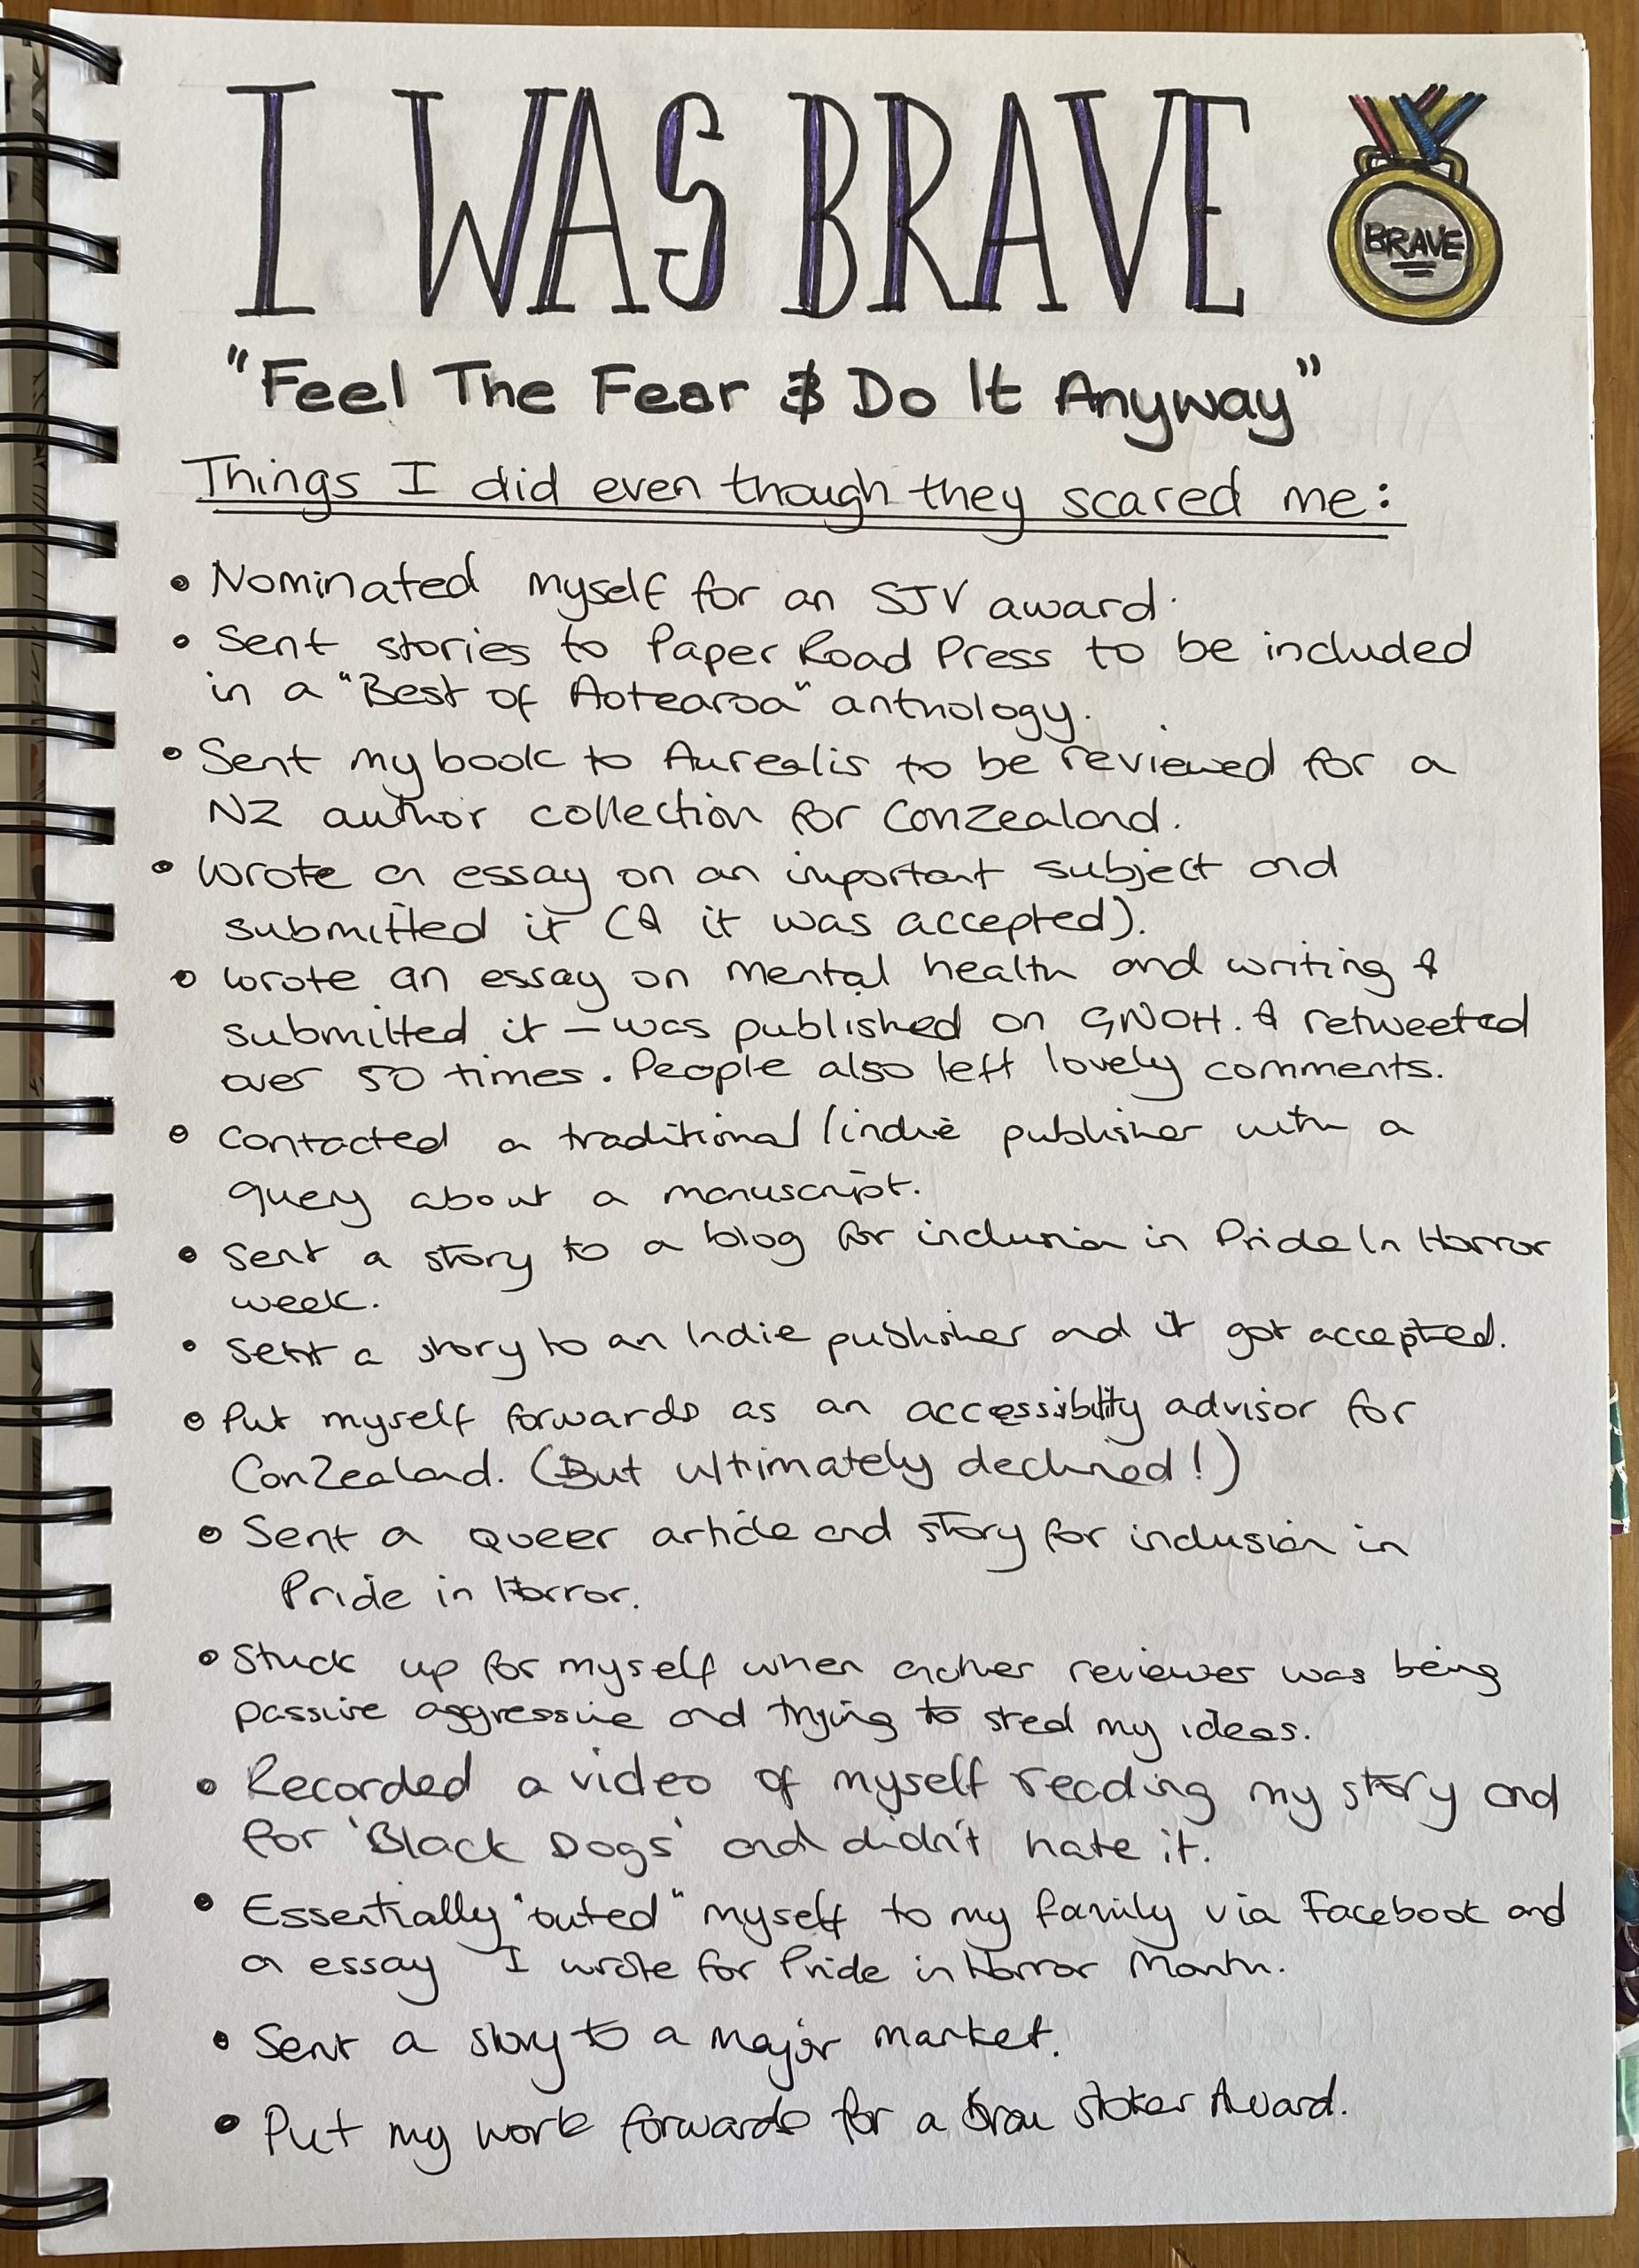 I WAS BRAVE
BRAVE
"Feel The Fear & Do It Anyway"
Things I did even though they scared me:
• Nominated myself for an SJV award.
• Sent stories to Paper Road Press to be included
in a "Best of Aotearoa" anthology.
• Sent my book to Aurealis to be reviewed for a
NZ author collection for ConZealand.
• Wrote an essay on an important subject and
submitted it (& it was accepted).
• Wrote an essay on mental health and writing &
submitted it – was published on GNOH. & retweeted
over 50 times. People also left lovely comments.
• Contacted a traditional/indie publisher with a
query about a manuscript.
• Sent a story to a blog for inclusion in Pride In Horror
week.
• Sent a story to an Indie publisher and it got accepted.
• Put myself forwards as an accessibility advisor for
ConZealand. (But ultimately declined!)
• Sent a queer article and story for inclusion in
Pride in Horror.
• Stuck up for myself when another reviewer was being
passive aggressive and trying to steal my ideas.
• Recorded a video of myself reading my story and
for 'Black Dogs' and didn't hate it.
• Essentially "outed" myself to my family via Facebook and
a essay I wrote for Pride in Horror Month.
• Sent a story to a major market.
• Put my work forwards for a Bram Stoker Award.